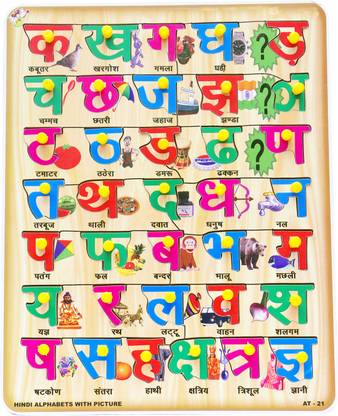 क ख ग घ ? ङ
कबूतर खरगोश गमला घड़ी
च छ ज झ ञ
चम्मच छतरी जहाज झण्डा ?
ट ठ ड ढ ? ण
टमाटर ठठेरा डमरू ढक्कन
त थ द ध न
तरबूज थाली दवात धनुष नल
प फ ब भ म
पतंग फल बन्दर भालू मछली
य र ल व श
यज्ञ रथ लट्टू वाहन शलगम
ष स ह क्ष त्र ज्ञ
षटकोण संतरा हाथी क्षत्रिय त्रिशूल ज्ञानी
HINDI ALPHABETS WITH PICTURE AT - 21